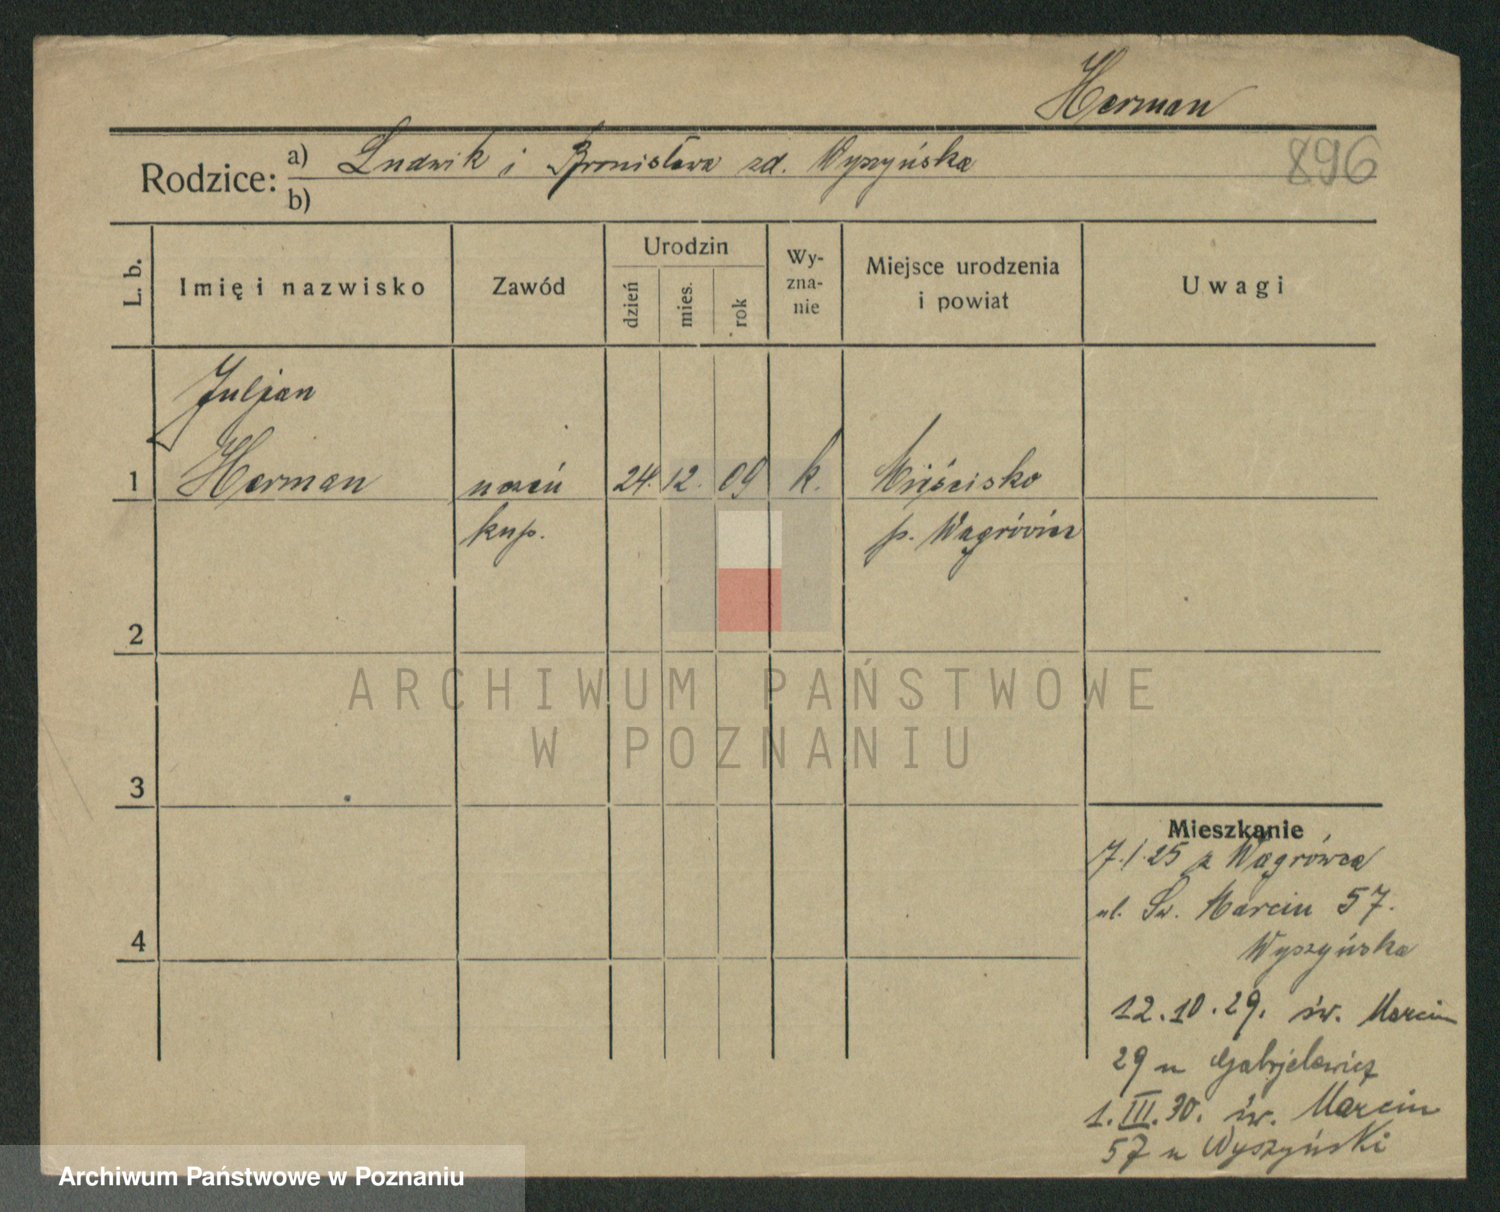 Herman
896
Rodzice: a) Ludwik i Bronisława zd. Wyszyńska
b)
L. b.
Imię i nazwisko
Zawód
Urodzin
dzień
mies.
rok
Wy-
zna-
nie
Miejsce urodzenia
i powiat
Uwagi
Juljan
1 Herman uczeń 24. 12. 09 k. Mieścisko
kup. p. Wągrówiec
2
3
4
Mieszkanie
7.1.25 z Wągrówca
ul. Św. Marcin 57.
Wyszyńska
12.10.29. św. Marcin
29 u Gabrjelewicz
1.III.30. św. Marcin
57 u Wyszyński
ARCHIWUM PAŃSTWOWE
W POZNANIU
Archiwum Państwowe w Poznaniu